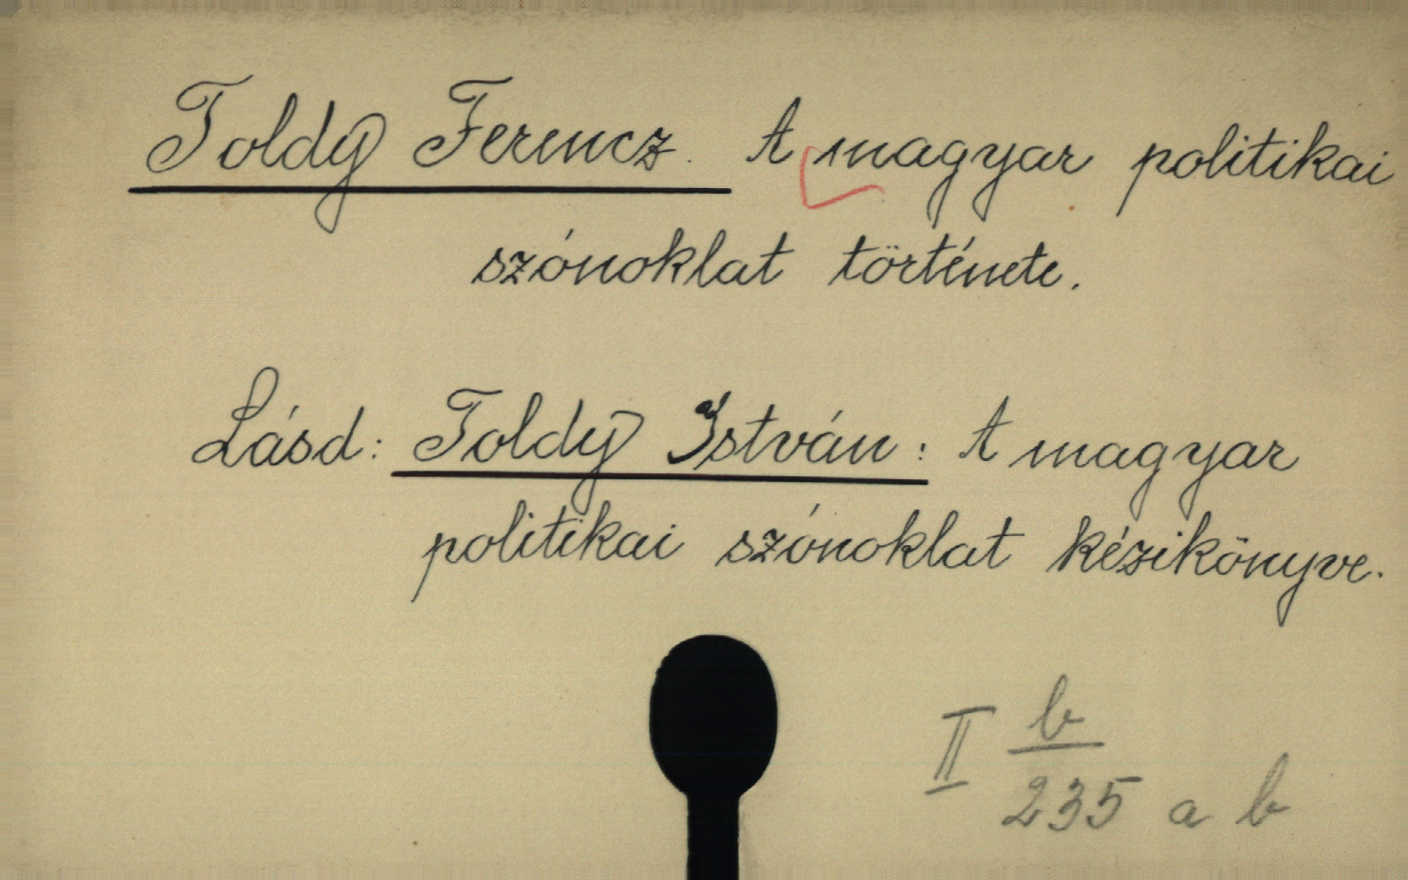 Toldy Ferencz. A magyar politikai
szónoklat története.
Lásd: Toldy István: A magyar
politikai szónoklat kézikönyve.
II b
235 a b